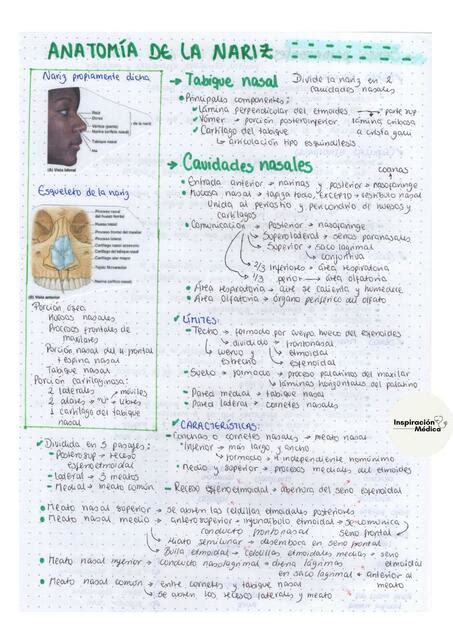 ANATOMÍA DE LA NARIZ
Nariz propiamente dicha
Raíz
Dorso
Vértice (punta)
Narina (orificio nasal)
Tabique nasal
Ala
de la nariz
(A) Vista lateral
Esqueleto de la nariz
Proceso nasal
del hueso frontal
Hueso nasal
Proceso frontal del maxilar
Proceso lateral
Cartílago del tabique nasal
Cartílago alar mayor
Tejido fibroareolar
Narina (orificio nasal)
(B) Vista anterior
Porción ósea
Huesos nasales
Procesos frontales de
maxilares
Porción nasal del H. frontal
+ espina nasal
Tabique nasal
Porción cartilaginosa:
2 laterales móviles
2 alares → "U" → libres
1 cartílago del tabique
nasal
→ Tabique nasal Divide la nariz en 2
cavidades nasales
• Principales componentes:
✓ Lámina perpendicular del etmoides → parte sup
✓ Vómer → porción posteroinferior lámina cribosa
✓ Cartílago del tabique a crista galli
↳ articulación tipo esquindilesis
→ Cavidades nasales
coanas
• Entrada anterior → narinas y posterior → nasofaringe
• Mucosa nasal → tapiza todo, EXCEPTO → vestíbulo nasal
Unida al periostio y pericondrio de huesos y
cartílagos
• Comunicación → Posterior → nasofaringe
Superolateral → senos paranasales
Superior → saco lagrimal
conjuntiva
2/3 inferiores → área respiratoria
1/3 → área olfatoria
• Área respiratoria → aire se calienta y humedece
• Área olfatoria → órgano periférico del olfato
✓ LÍMITES:
- Techo → formado por cuerpo hueco del esfenoides
dividido → frontonasal
curvo y → etmoidal
estrecho esfenoidal
- Suelo → formado → proceso palatinos del maxilar
láminas horizontales del palatino
- Pared medial → tabique nasal
- Pared lateral → cornetes nasales
✓ CARACTERÍSTICAS:
Conchas o cornetes nasales → meato nasal
• Inferior → más largo y ancho
↳ formado → H independiente homónimo
• Medio y superior → procesos mediales del etmoides
✓ Dividida en 5 pasajes:
- Posterosup → receso
esfenoetmoidal
- Lateral → 3 meatos
- Medial → meato común
- Receso esfenoetmoidal → abertura del seno esfenoidal
• Meato nasal superior → se abren las celdillas etmoidales posteriores
• Meato nasal medio → anterosuperior → infundíbulo etmoidal → se comunica
conducto frontonasal seno frontal
→ Hiato semilunar → desemboca en seno frontal
Bulla etmoidal → celdillas etmoidales medias → seno
etmoidal
• Meato nasal inferior → conducto nasolagrimal → drena lágrimas
en saco lagrimal → anterior al
meato
• Meato nasal común → entre cornetes y tabique nasal
↳ se abren los recesos laterales y meato
Inspiración
Médica